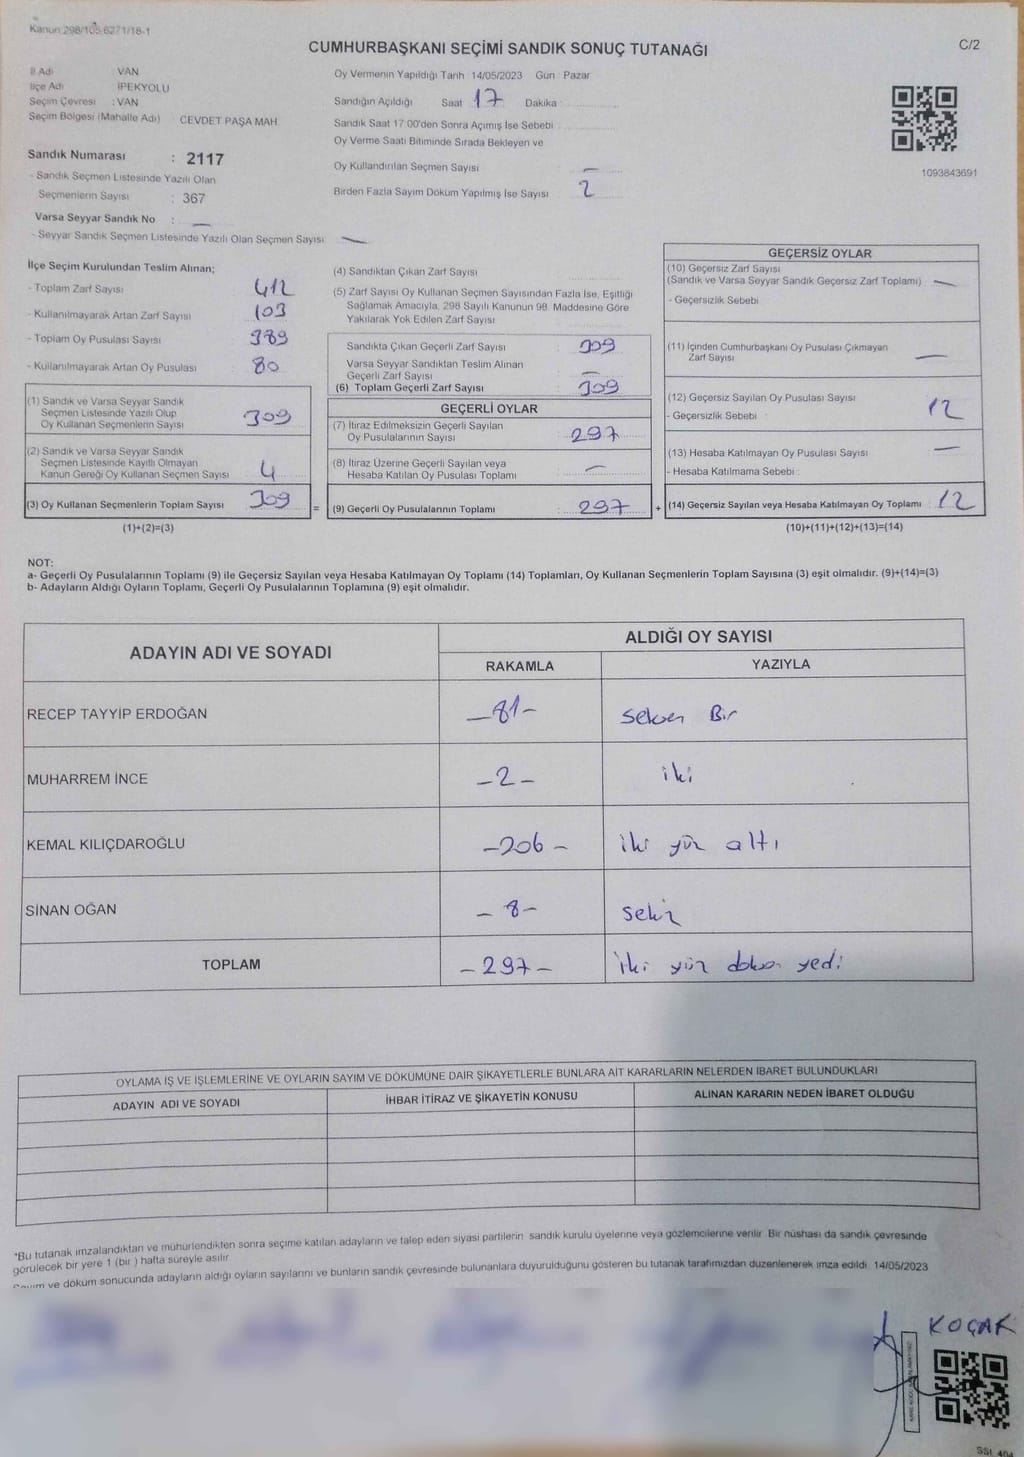 Kanun 298/105,6271/18-1
CUMHURBAŞKANI SEÇİMİ SANDIK SONUÇ TUTANAĞI
C/2
İl Adı VAN
İlçe Adı İPEKYOLU
Seçim Çevresi : VAN
Seçim Bölgesi (Mahalle Adı) CEVDET PAŞA MAH.
Sandık Numarası : 2117
- Sandık Seçmen Listesinde Yazılı Olan
Seçmenlerin Sayısı : 367
Varsa Seyyar Sandık No : —
- Seyyar Sandık Seçmen Listesinde Yazılı Olan Seçmen Sayısı: —
Oy Vermenin Yapıldığı Tarih 14/05/2023 Gün : Pazar
Sandığın Açıldığı Saat 17 Dakika :
Sandık Saat 17.00'den Sonra Açımış İse Sebebi :
Oy Verme Saati Bitiminde Sırada Bekleyen ve
Oy Kullandırılan Seçmen Sayısı —
Birden Fazla Sayım Döküm Yapılmış İse Sayısı 2
1093843691
İlçe Seçim Kurulundan Teslim Alınan;
- Toplam Zarf Sayısı 412
- Kullanılmayarak Artan Zarf Sayısı 103
- Toplam Oy Pusulası Sayısı 389
- Kullanılmayarak Artan Oy Pusulası 80
(1) Sandık ve Varsa Seyyar Sandık
Seçmen Listesinde Yazılı Olup
Oy Kullanan Seçmenlerin Sayısı 309
(2) Sandık ve Varsa Seyyar Sandık
Seçmen Listesinde Kayıtlı Olmayan
Kanun Gereği Oy Kullanan Seçmen Sayısı 4
(3) Oy Kullanan Seçmenlerin Toplam Sayısı 309
(1)+(2)=(3)
(4) Sandıktan Çıkan Zarf Sayısı
(5) Zarf Sayısı Oy Kullanan Seçmen Sayısından Fazla İse, Eşitliği
Sağlamak Amacıyla, 298 Sayılı Kanunun 98. Maddesine Göre
Yakılarak Yok Edilen Zarf Sayısı
Sandıkta Çıkan Geçerli Zarf Sayısı : 309
Varsa Seyyar Sandıktan Teslim Alınan
Geçerli Zarf Sayısı —
(6) Toplam Geçerli Zarf Sayısı : 309
GEÇERLİ OYLAR
(7) İtiraz Edilmeksizin Geçerli Sayılan
Oy Pusulalarının Sayısı 297
(8) İtiraz Üzerine Geçerli Sayılan veya
Hesaba Katılan Oy Pusulası Toplamı —
= (9) Geçerli Oy Pusulalarının Toplamı : 297 +
GEÇERSİZ OYLAR
(10) Geçersiz Zarf Sayısı
(Sandık ve Varsa Seyyar Sandık Geçersiz Zarf Toplamı) —
- Geçersizlik Sebebi
(11) İçinden Cumhurbaşkanı Oy Pusulası Çıkmayan
Zarf Sayısı —
(12) Geçersiz Sayılan Oy Pusulası Sayısı 12
- Geçersizlik Sebebi :
(13) Hesaba Katılmayan Oy Pusulası Sayısı —
- Hesaba Katılmama Sebebi :
(14) Geçersiz Sayılan veya Hesaba Katılmayan Oy Toplamı : 12
(10)+(11)+(12)+(13)=(14)
NOT:
a- Geçerli Oy Pusulalarının Toplamı (9) ile Geçersiz Sayılan veya Hesaba Katılmayan Oy Toplamı (14) Toplamları, Oy Kullanan Seçmenlerin Toplam Sayısına (3) eşit olmalıdır. (9)+(14)=(3)
b- Adayların Aldığı Oyların Toplamı, Geçerli Oy Pusulalarının Toplamına (9) eşit olmalıdır.
ADAYIN ADI VE SOYADI
ALDIĞI OY SAYISI
RAKAMLA YAZIYLA
RECEP TAYYİP ERDOĞAN –81– Seksen Bir
MUHARREM İNCE –2– iki
KEMAL KILIÇDAROĞLU –206– iki yüz altı
SİNAN OĞAN –8– sekiz
TOPLAM –297– İki yüz doksan yedi
OYLAMA İŞ VE İŞLEMLERİNE VE OYLARIN SAYIM VE DÖKÜMÜNE DAİR ŞİKAYETLERLE BUNLARA AİT KARARLARIN NELERDEN İBARET BULUNDUKLARI
ADAYIN ADI VE SOYADI İHBAR İTİRAZ VE ŞİKAYETİN KONUSU ALINAN KARARIN NEDEN İBARET OLDUĞU
*Bu tutanak imzalandıktan ve mühürlendikten sonra seçime katılan adayların ve talep eden siyasi partilerin sandık kurulu üyelerine veya gözlemcilerine verilir. Bir nüshası da sandık çevresinde
görülecek bir yere 1 (bir ) hafta süreyle asılır.
Sayım ve döküm sonucunda adayların aldığı oyların sayılarını ve bunların sandık çevresinde bulunanlara duyurulduğunu gösteren bu tutanak tarafımızdan düzenlenerek imza edildi. 14/05/2023
KOÇAK
SSI 404